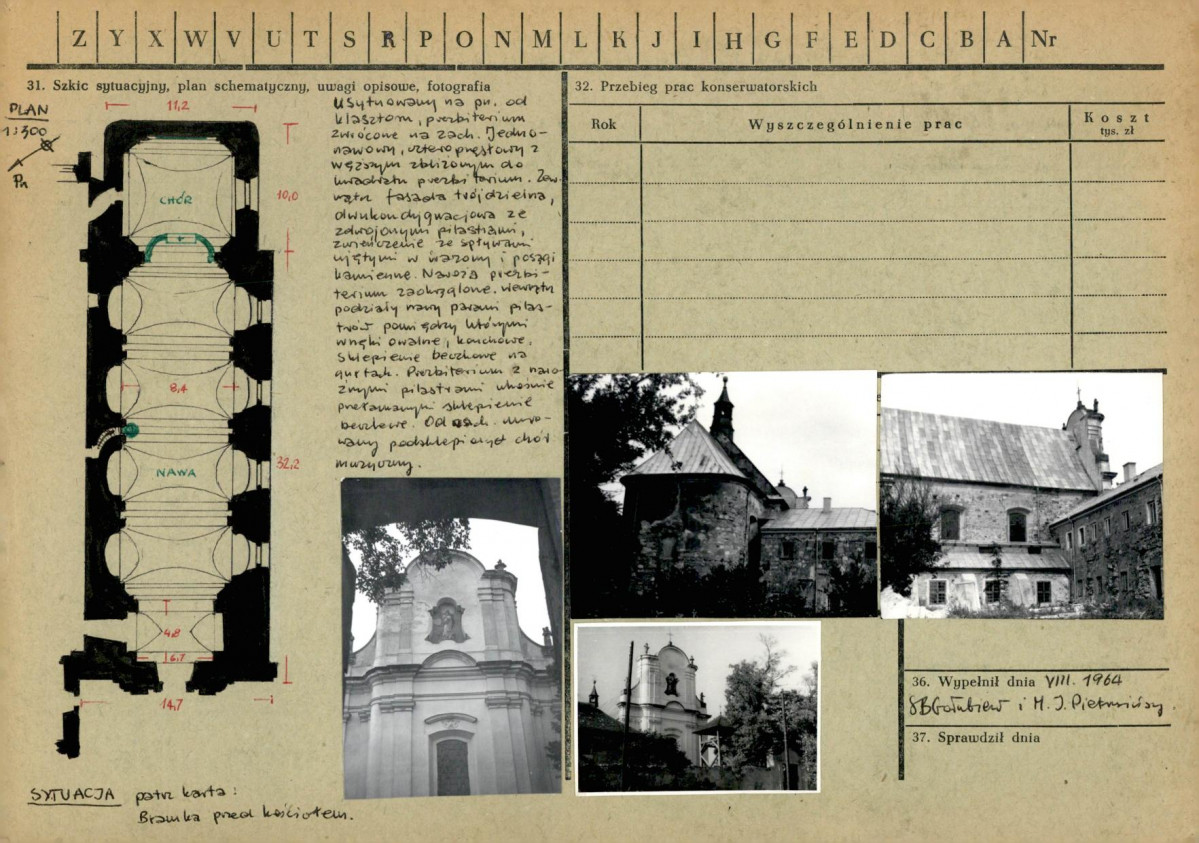 Z Y X W V U T S R P O N M L K J I H G F E D C B A Nr
31. Szkic sytuacyjny, plan schematyczny, uwagi opisowe, fotografia
PLAN
1:300
Pn
11,2
10,0
CHÓR
8,4
NAWA
32,2
4,8
6,7
14,7
Usytuowany na pn. od
klasztoru, prezbiterium
zwrócone na zach. Jedno-
nawowy, czteroprzęsłowy z
węższym zbliżonym do
kwadratu prezbiterium. Zew-
nątrz fasada trójdzielna,
dwukondygnacjowa ze
zdwojonymi pilastrami,
zwieńczenie ze spływami
ujętymi w wazony i posągi
kamienne. Naroża prezbi-
terium zaokrąglone. Wewnątrz
podziały nawy parami pilas-
trów pomiędzy którymi
wnęki owalne, konchowe.
Sklepienie beczkowe na
gurtach. Prezbiterium z naro-
żnymi pilastrami ukośnie
przełamanymi sklepienie
beczkowe. Od zach. muro-
wany podsklepiony chór
muzyczny.
SYTUACJA patrz karta:
Bramka przed kościołem.
32. Przebieg prac konserwatorskich
Rok Wyszczególnienie prac Koszt
tys. zł
36. Wypełnił dnia VIII. 1964
i M. J.
37. Sprawdził dnia